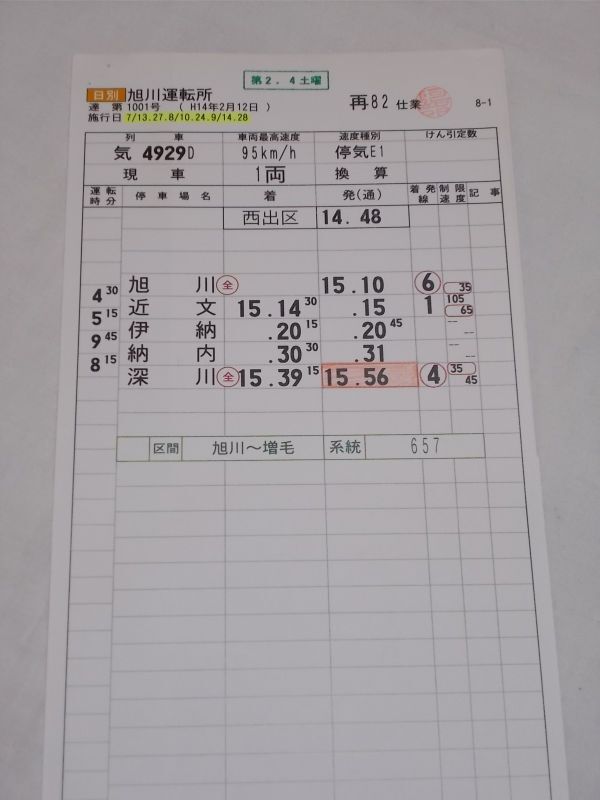 第2.4土曜
日別 旭川運転所 再82仕業 8-1
達 第1001号 ( H14年2月12日 )
施行日 7/13.27.8/10.24.9/14.28
列 車 車両最高速度 速度種別 けん引定数
気 4929D 95km/h 停気E1
現 車 1両 換 算
運転時分 停車場名 着 発(通) 着発線 制限速度 記事
西出区 14.48
旭 川 全 15.10 6 35
4 30
近 文 15.14 30 .15 1 105 65
5 15
伊 納 .20 15 .20 45 -- --
9 45
納 内 .30 30 .31 -- --
8 15
深 川 全 15.39 15 15.56 4 35 45
区間 旭川〜増毛 系統 657